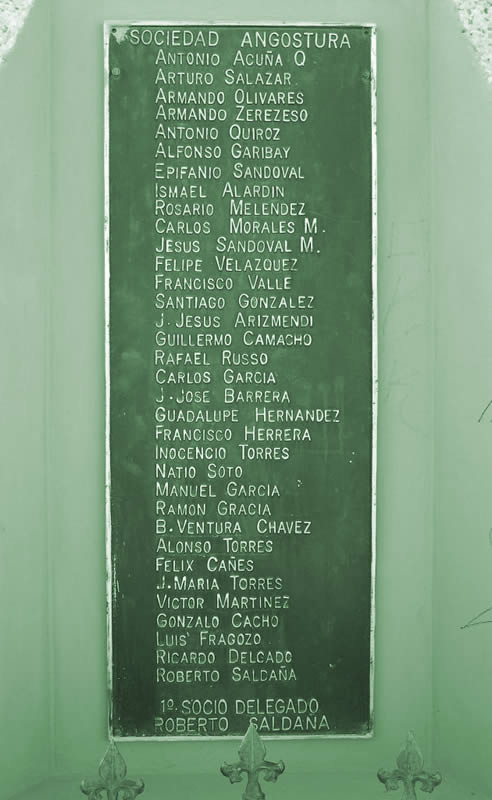 SOCIEDAD ANGOSTURA
ANTONIO ACUÑA Q
ARTURO SALAZAR
ARMANDO OLIVARES
ARMANDO ZEREZESO
ANTONIO QUIROZ
ALFONSO GARIBAY
EPIFANIO SANDOVAL
ISMAEL ALARDIN
ROSARIO MELENDEZ
CARLOS MORALES M.
JESUS SANDOVAL M.
FELIPE VELAZQUEZ
FRANCISCO VALLE
SANTIAGO GONZALEZ
J. JESUS ARIZMENDI
GUILLERMO CAMACHO
RAFAEL RUSSO
CARLOS GARCIA
J. JOSE BARRERA
GUADALUPE HERNANDEZ
FRANCISCO HERRERA
INOCENCIO TORRES
NATIO SOTO
MANUEL GARCIA
RAMON GRACIA
B. VENTURA CHAVEZ
ALONSO TORRES
FELIX CAÑES
J. MARIA TORRES
VICTOR MARTINEZ
GONZALO CACHO
LUIS FRAGOZO
RICARDO DELGADO
ROBERTO SALDAÑA
1º. SOCIO DELEGADO
ROBERTO SALDANA